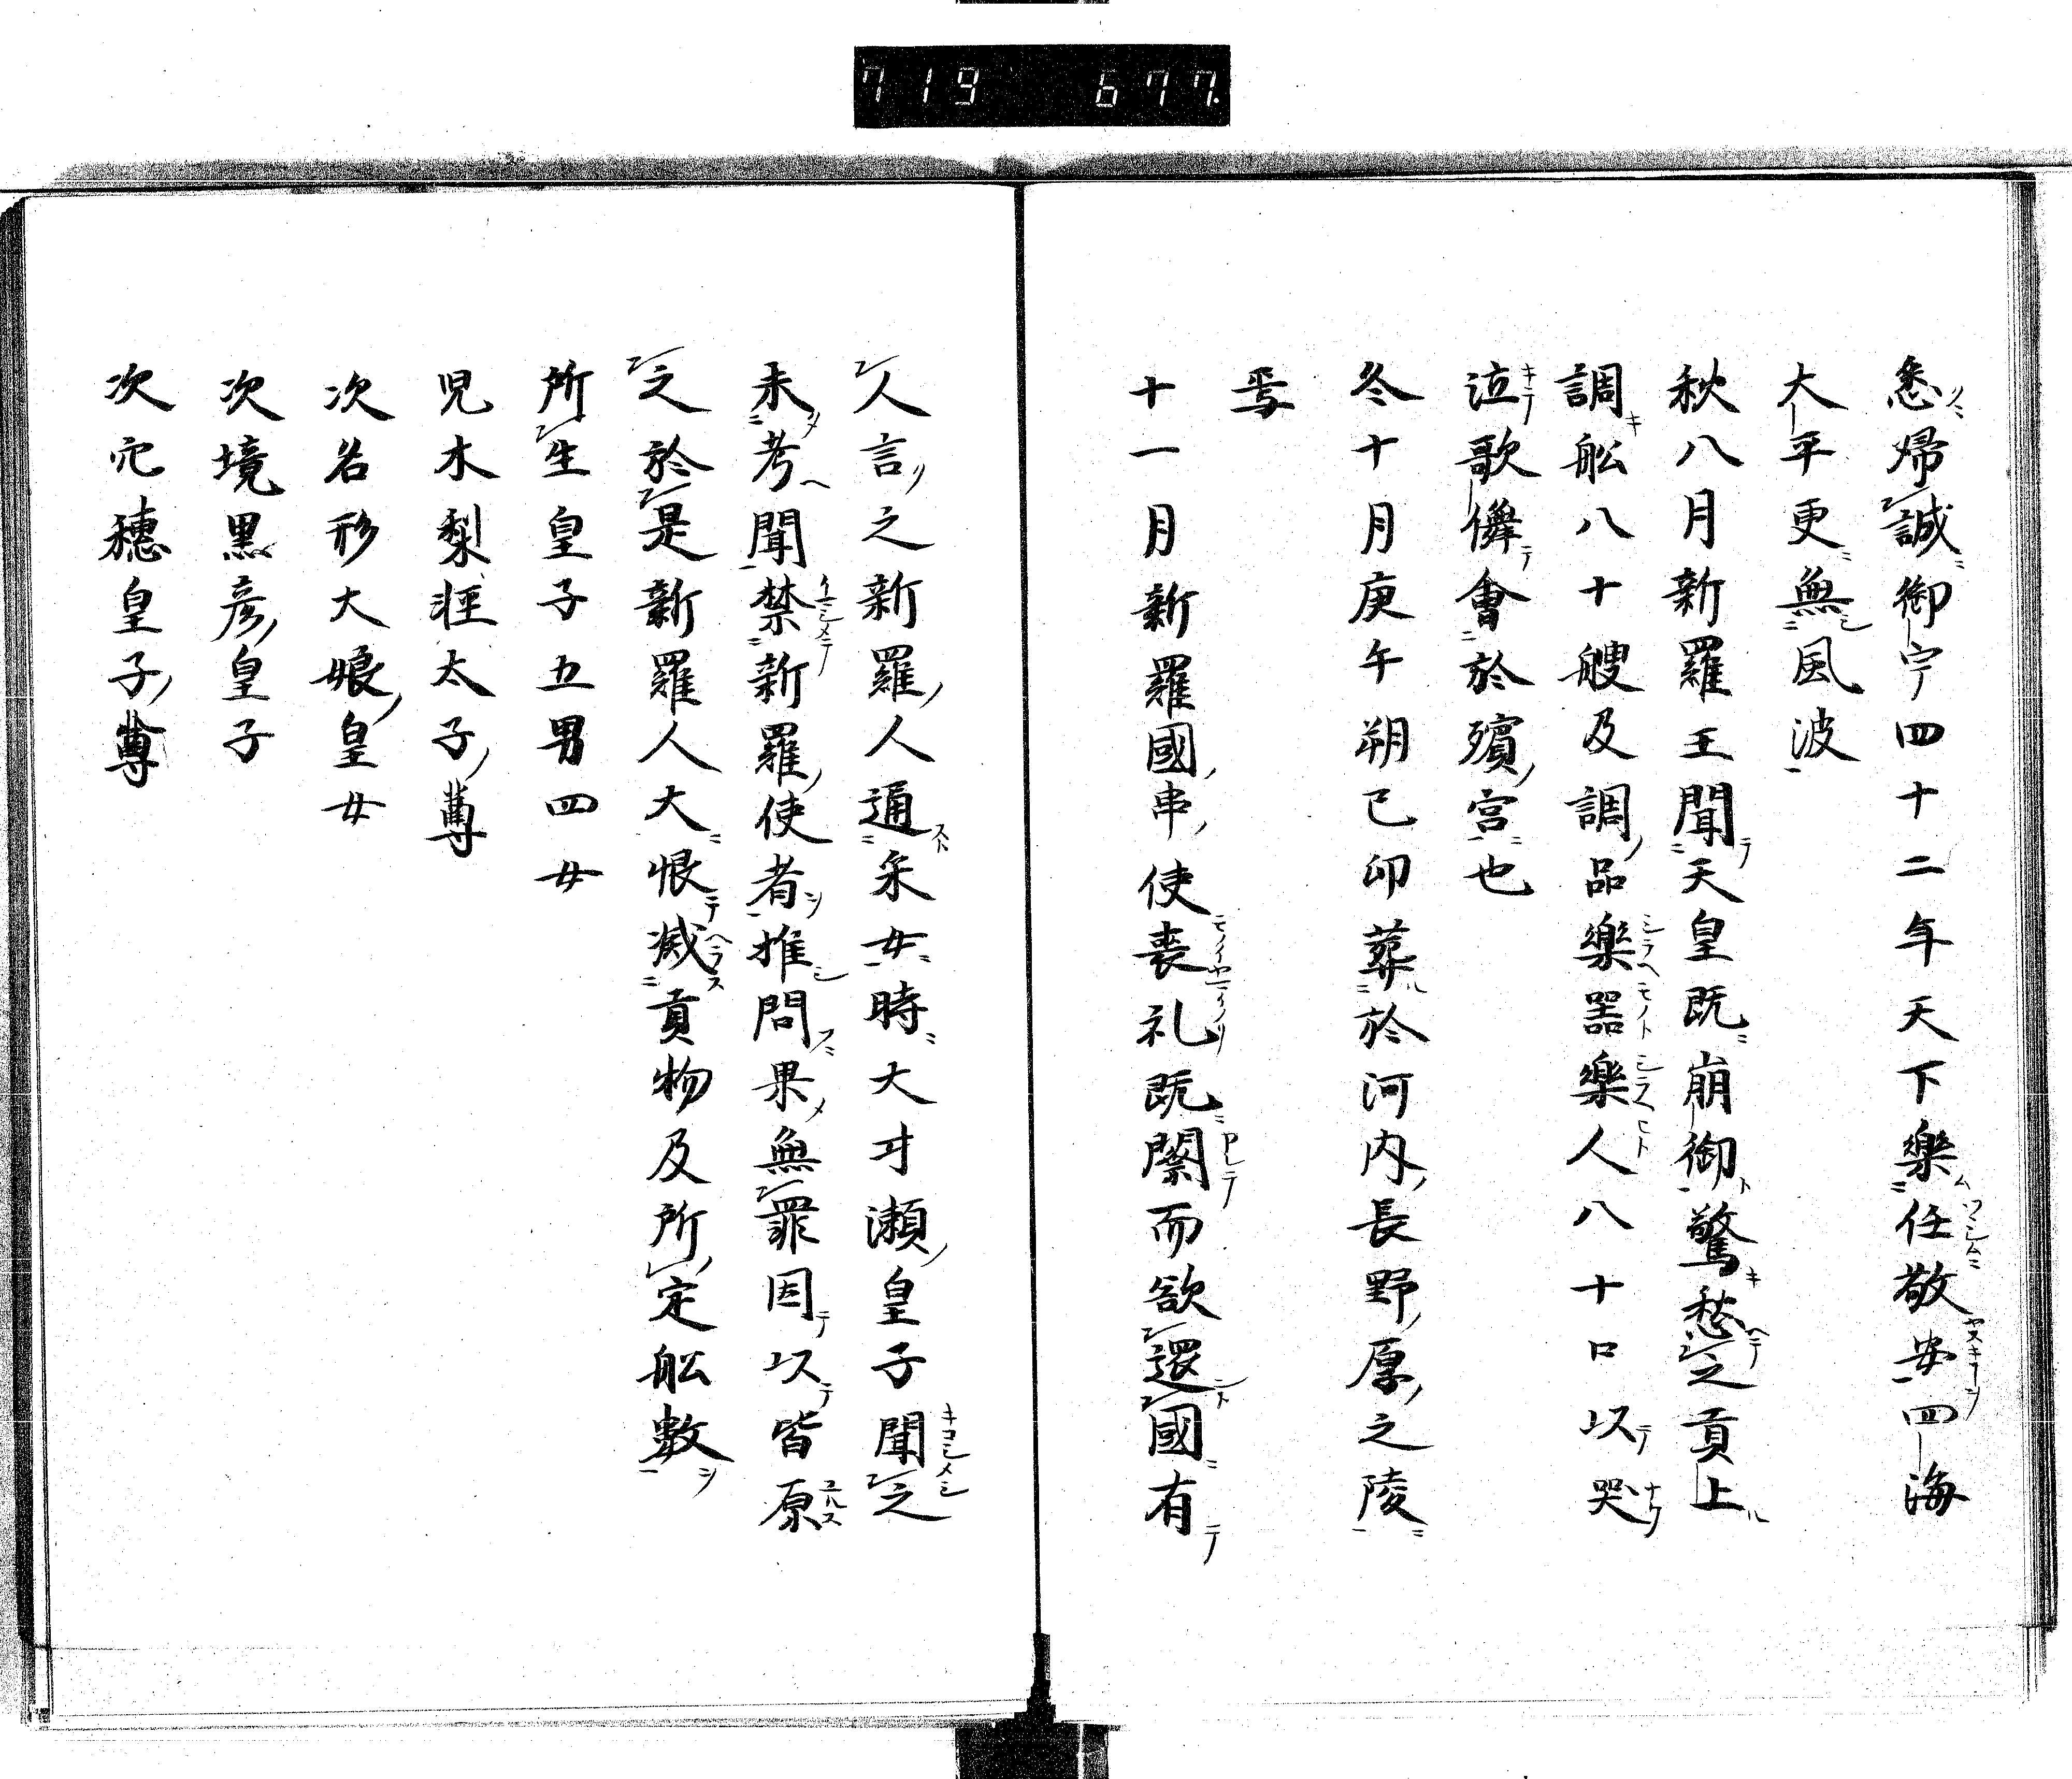 719 677.
悉帰誠御宇四十二年天下樂任敬安四海
大平更無風波
秋八月新羅王聞天皇既崩御驚愁之貢上
調舩八十艘及調品樂器樂人八十口以哭
泣歌儛會於殯宮也
冬十月庚午朔己卯葬於河内長野原之陵
焉
十一月新羅國串使喪礼既闋而欲還國有
人言之新羅人通采女時大才瀬皇子聞之
未考聞禁新羅使者推問果無罪因以皆原
之於是新羅人大恨減貢物及所定舩數
所生皇子五男四女
児木梨軽太子尊
次名形大娘皇女
次境黒彦皇子
次穴穂皇子尊